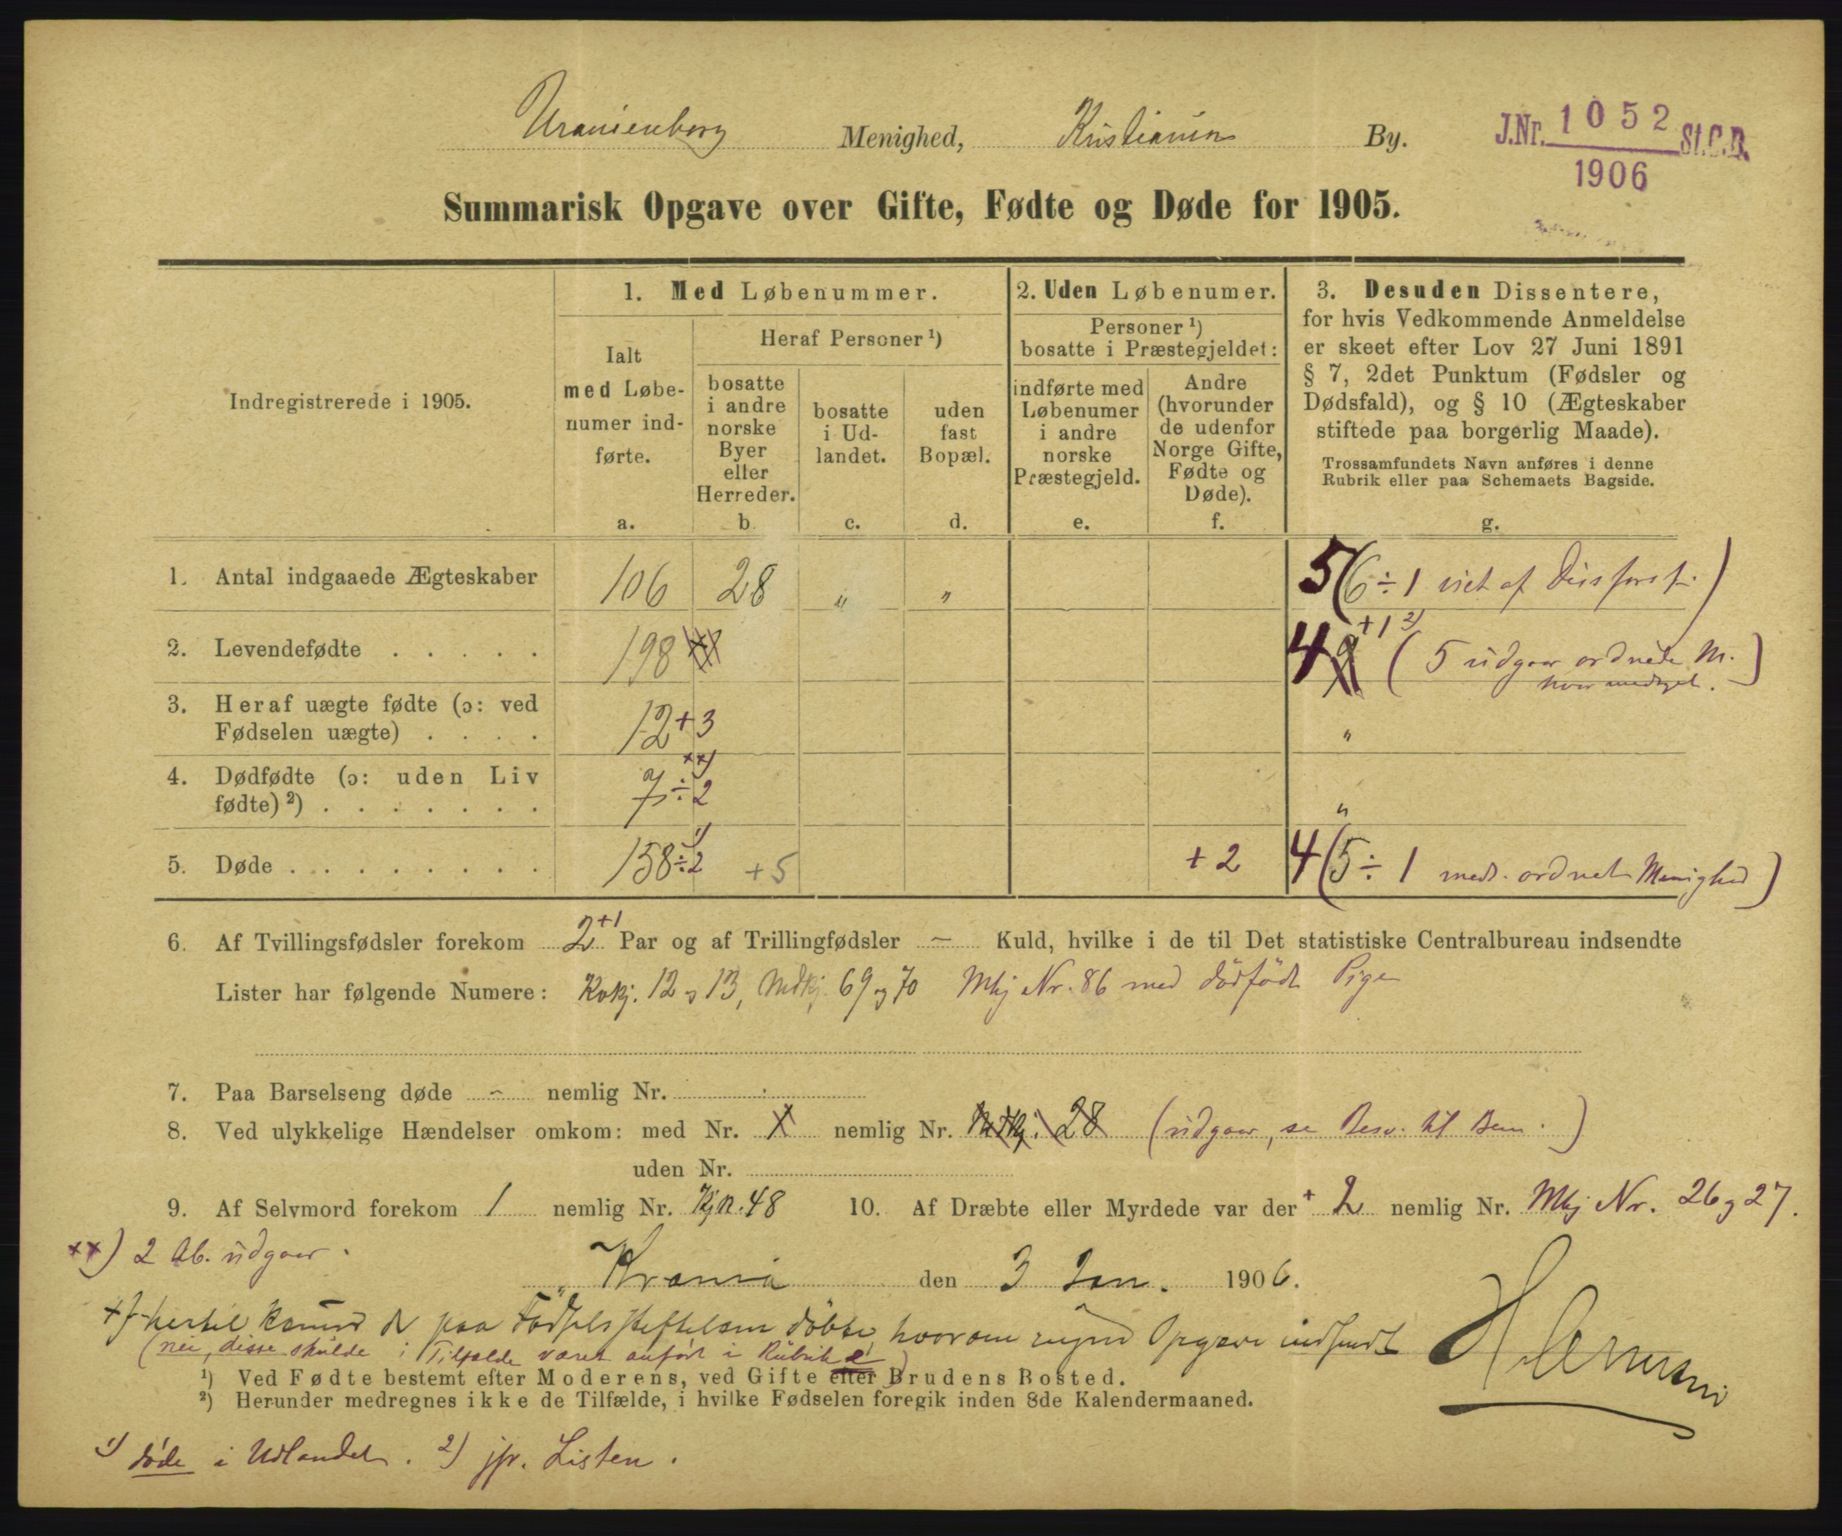 Uranienborg Menighed, Kristiania By.
J.Nr. 1052 St.C.B.
1906
Summarisk Opgave over Gifte, Fødte og Døde for 1905.
Indregistrerede i 1905.
1. Med Løbenummer.
Ialt med Løbe-
numer ind-
førte.
a.
Heraf Personer ¹)
bosatte
i andre
norske
Byer
eller
Herreder.
b
bosatte
i Ud-
landet.
c.
uden
fast
Bopæl.
d.
2. Uden Løbenumer.
Personer ¹)
bosatte i Præstegjeldet:
indførte med
Løbenumer
i andre
norske
Præstegjeld.
e.
Andre
(hvorunder
de udenfor
Norge Gifte,
Fødte og
Døde).
f.
3. Desuden Dissentere,
for hvis Vedkommende Anmeldelse
er skeet efter Lov 27 Juni 1891
§ 7, 2det Punktum (Fødsler og
Dødsfald), og § 10 (Ægteskaber
stiftede paa borgerlig Maade).
Trossamfundets Navn anføres i denne
Rubrik eller paa Schemaets Bagside.
g.
1. Antal indgaaede Ægteskaber 106 28 „ „ 5 (6 ÷ 1 viet af Diss.forst.)
2. Levendefødte . . . . . 198 4 9 +1 2) (5 udgaar ordnede M.
hvor medtaget.)
3. Heraf uægte fødte (ɔ: ved
Fødselen uægte) . . . . 12 + 3 „
4. Dødfødte (ɔ: uden Liv
fødte) ²) . . . . . . . 7 ÷ 2 xx) „
5. Døde . . . . . . . . 158 ÷ 2 1) + 5 + 2 4 (5 ÷ 1 meds. ordnet Menighed)
6. Af Tvillingsfødsler forekom 2 +1 Par og af Trillingfødsler – Kuld, hvilke i de til Det statistiske Centralbureau indsendte
Lister har følgende Numere: Kvkj. 12 og 13, Mdkj. 69 og 70 Mkj Nr. 86 med dödfödt Pige
7. Paa Barselseng døde – nemlig Nr.
8. Ved ulykkelige Hændelser omkom: med Nr. 1 nemlig Nr. Mdkj. 28 (udgaar, se Besv. til Bem.)
uden Nr.
9. Af Selvmord forekom 1 nemlig Nr. Kjn. 48 10. Af Dræbte eller Myrdede var der + 2 nemlig Nr. Mkj Nr. 26 og 27.
xx) 2 Ab. udgaar.
Krania den 3 Jan. 1906.
hertil kommer de paa Fødselsstiftelsen døbte, hvorom Opgave indsendt
(nei, disse skulde i Tilfælde været anført i Rubrik e)
¹) Ved Fødte bestemt efter Moderens, ved Gifte efter Brudens Bosted.
²) Herunder medregnes ikke de Tilfælde, i hvilke Fødselen foregik inden 8de Kalendermaaned.
1) døde i Udlandet. 2) jfr. Listen.